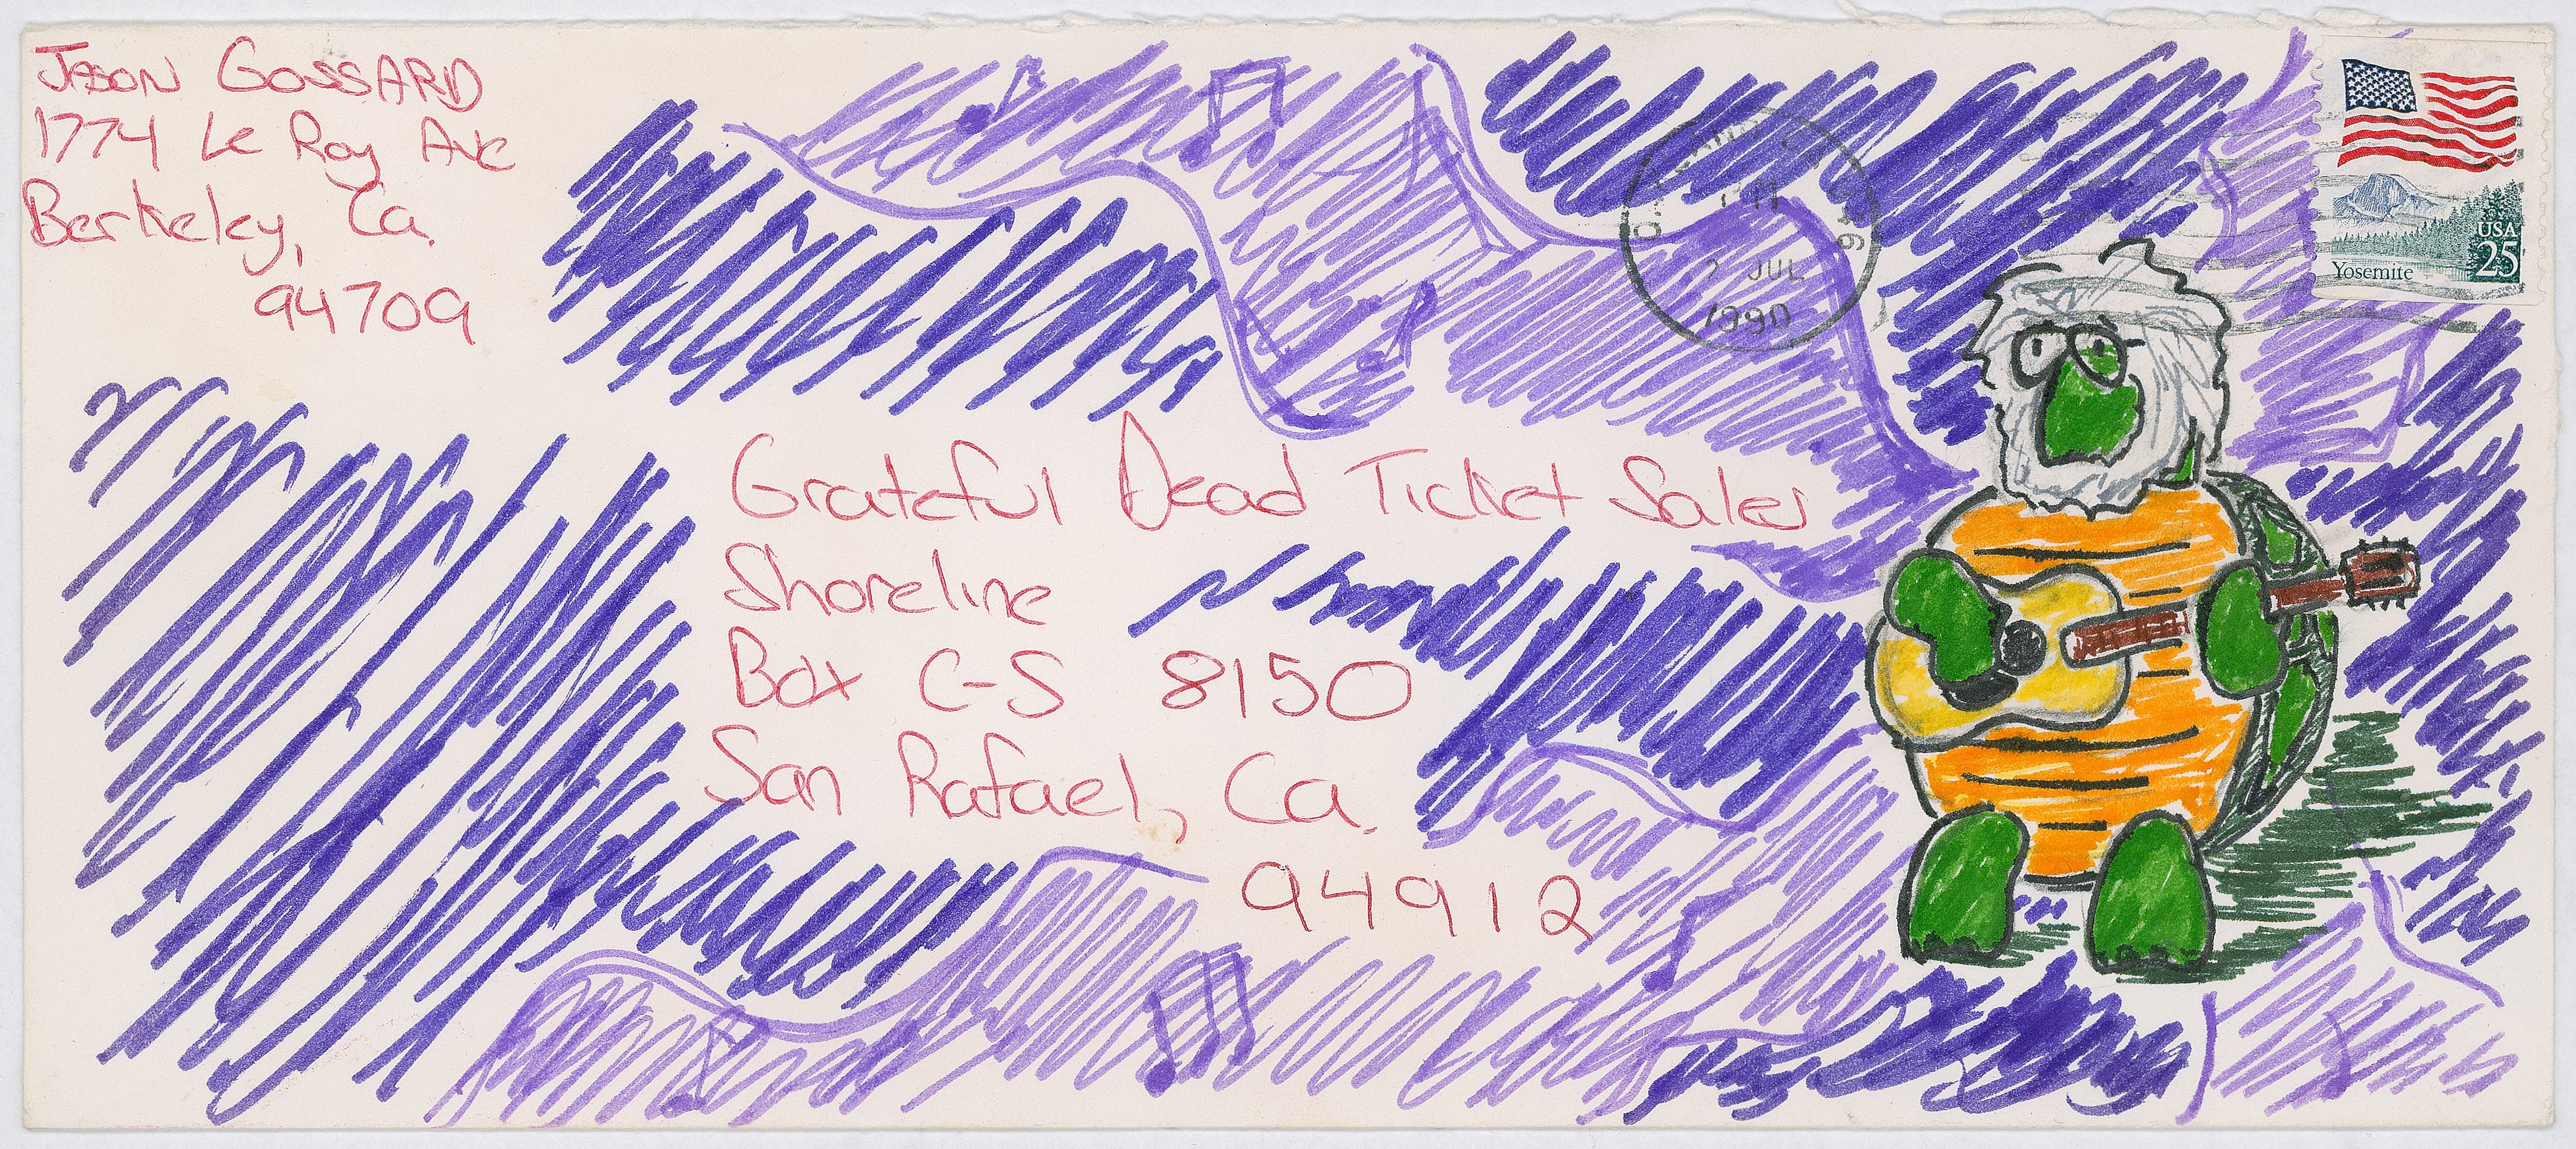 Jason Gossard
1774 Le Roy Ave
Berkeley, Ca.
94709
JUL
1990
USA
25
Yosemite
Grateful Dead Ticket Sales
Shoreline
Box C-S 8150
San Rafael, Ca.
94912